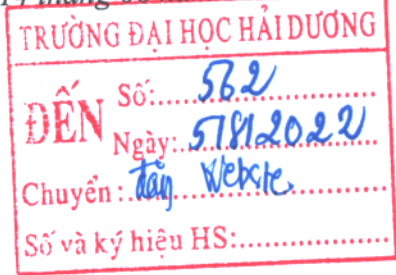 tháng
TRƯỜNG ĐẠI HỌC HẢI DƯƠNG
ĐẾN
Số:.....562
Ngày:..5/8/2022
Chuyển: đăng Website.
Số và ký hiệu HS:................